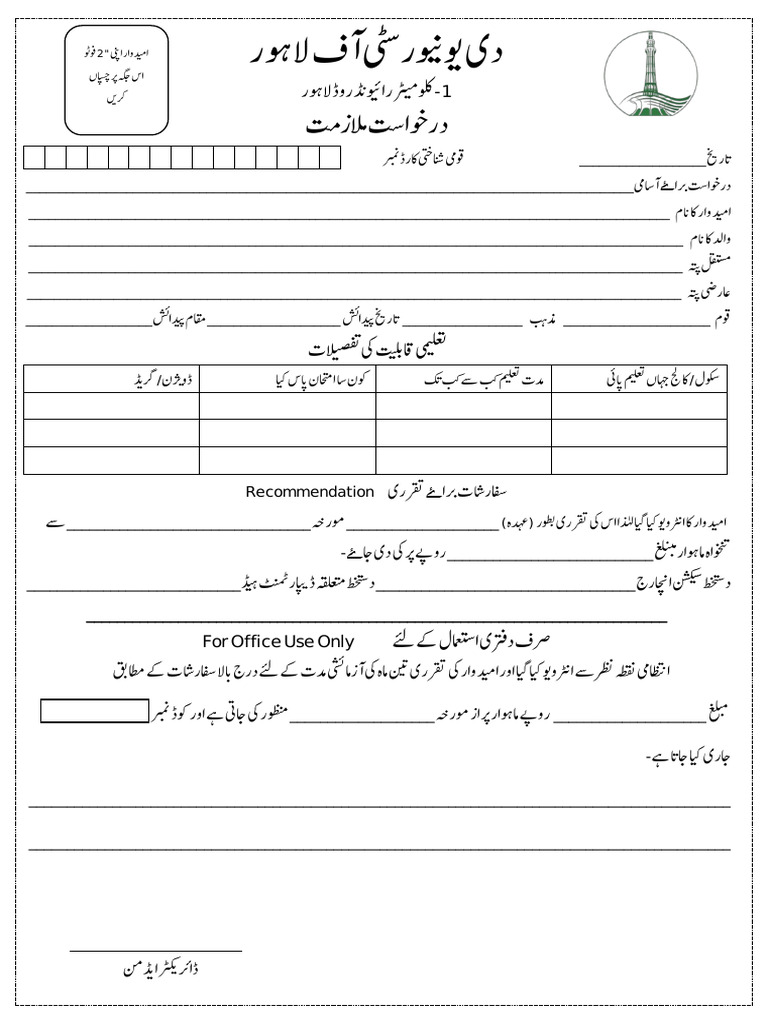 دی یونیورسٹی آف لاہور
امیدوار اپنی "2 فوٹو
اس جگہ پر چسپاں
کریں
1-کلومیٹر رائیونڈ روڈ لاہور
درخواست ملازمت
تاریخ____________ قومی شناختی کارڈ نمبر
درخواست برائے آسامی____________
امیدوار کا نام ____________
والد کا نام ____________
مستقل پتہ ____________
عارضی پتہ ____________
قوم ____________ مذہب ____________ تاریخ پیدائش ____________ مقام پیدائش ____________
تعلیمی قابلیت کی تفصیلات
سکول/کالج جہاں تعلیم پائی مدت تعلیم کب سے کب تک کون سا امتحان پاس کیا ڈویژن/گریڈ
سفارشات برائے تقرری Recommendation
امیدوار کا انٹرویو کیا گیا لہٰذا اس کی تقرری بطور (عہدہ) ____________ مورخہ ____________ سے
تنخواہ ماہوار مبلغ ____________ روپے پر کی دی جائے-
دستخط سیکشن انچارج____________ دستخط متعلقہ ڈیپارٹمنٹ ہیڈ____________
صرف دفتری استعمال کے لئے For Office Use Only
انتظامی نقطہ نظر سے انٹرویو کیا گیا اور امیدوار کی تقرری تین ماہ کی آزمائشی مدت کے لئے درج بالا سفارشات کے مطابق
مبلغ ____________ روپے ماہوار پر از مورخہ ____________ منظور کی جاتی ہے اور کوڈ نمبر
جاری کیا جاتا ہے-
ڈائریکٹر ایڈمن